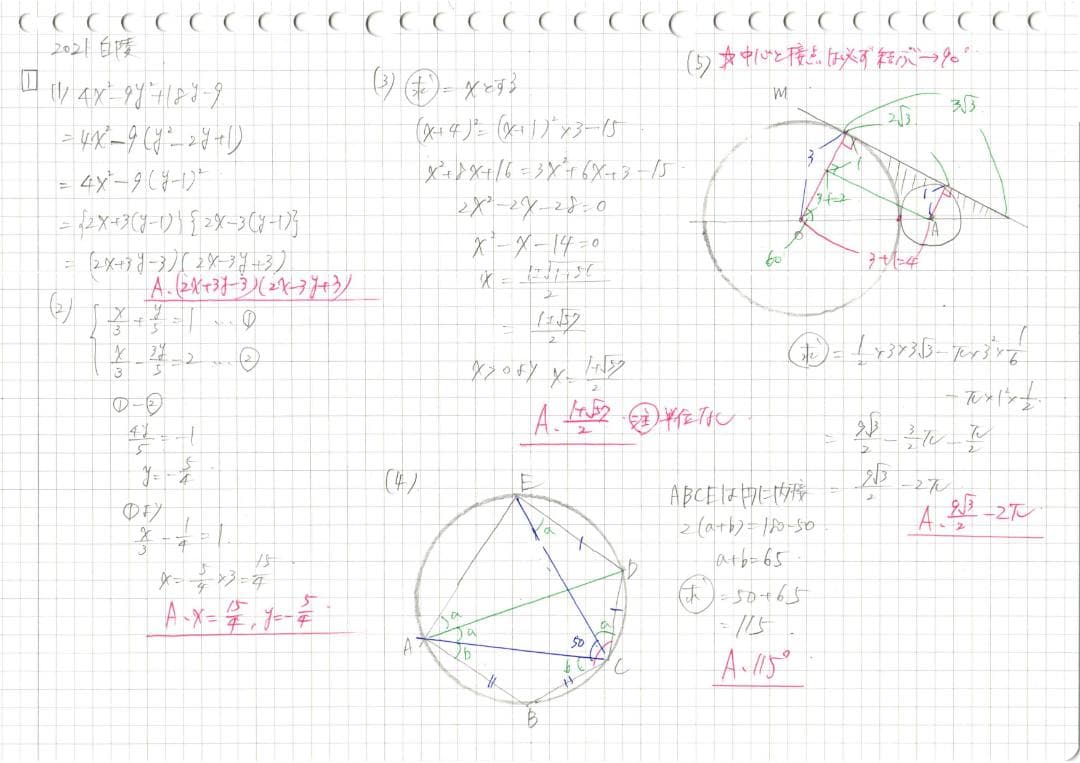 2021 白陵
1
(1) 4x²-9y²+18y-9
=4x²-9(y²-2y+1)
=4x²-9(y-1)²
={2x+3(y-1)}{2x-3(y-1)}
=(2x+3y-3)(2x-3y+3)
A.(2x+3y-3)(2x-3y+3)
(2)
x/3+y/5=1 … ①
x/3-3y/5=2 … ②
①-②
4y/5=-1
y=-5/4
①より
x/3-1/4=1
x=5/4×3=15/4
A. x=15/4, y=-5/4
(3) 求=xとする
(x+4)²=(x+1)²×3-15
x²+8x+16=3x²+6x+3-15
2x²-2x-28=0
x²-x-14=0
x=(1±√1+56)/2
=(1±√57)/2
x>0より x=(1+√57)/2
A. (1+√57)/2 注 単位なし
(4)
E
a
D
a
a
b
A
50
a
b
C
B
ABCEは円に内接
2(a+b)=180-50
a+b=65
求=50+65
=115
A. 115°
(5) ☆中心と接点は必ず結ぶ→90°
M
2√3
3√3
3
1
3-1=2
1
O
A
60
3+1=4
求=1/2×3×3√3-π×3²×1/6
-π×1²×1/2
=9√3/2-3/2π-π/2
=9√3/2-2π
A. 9√3/2-2π